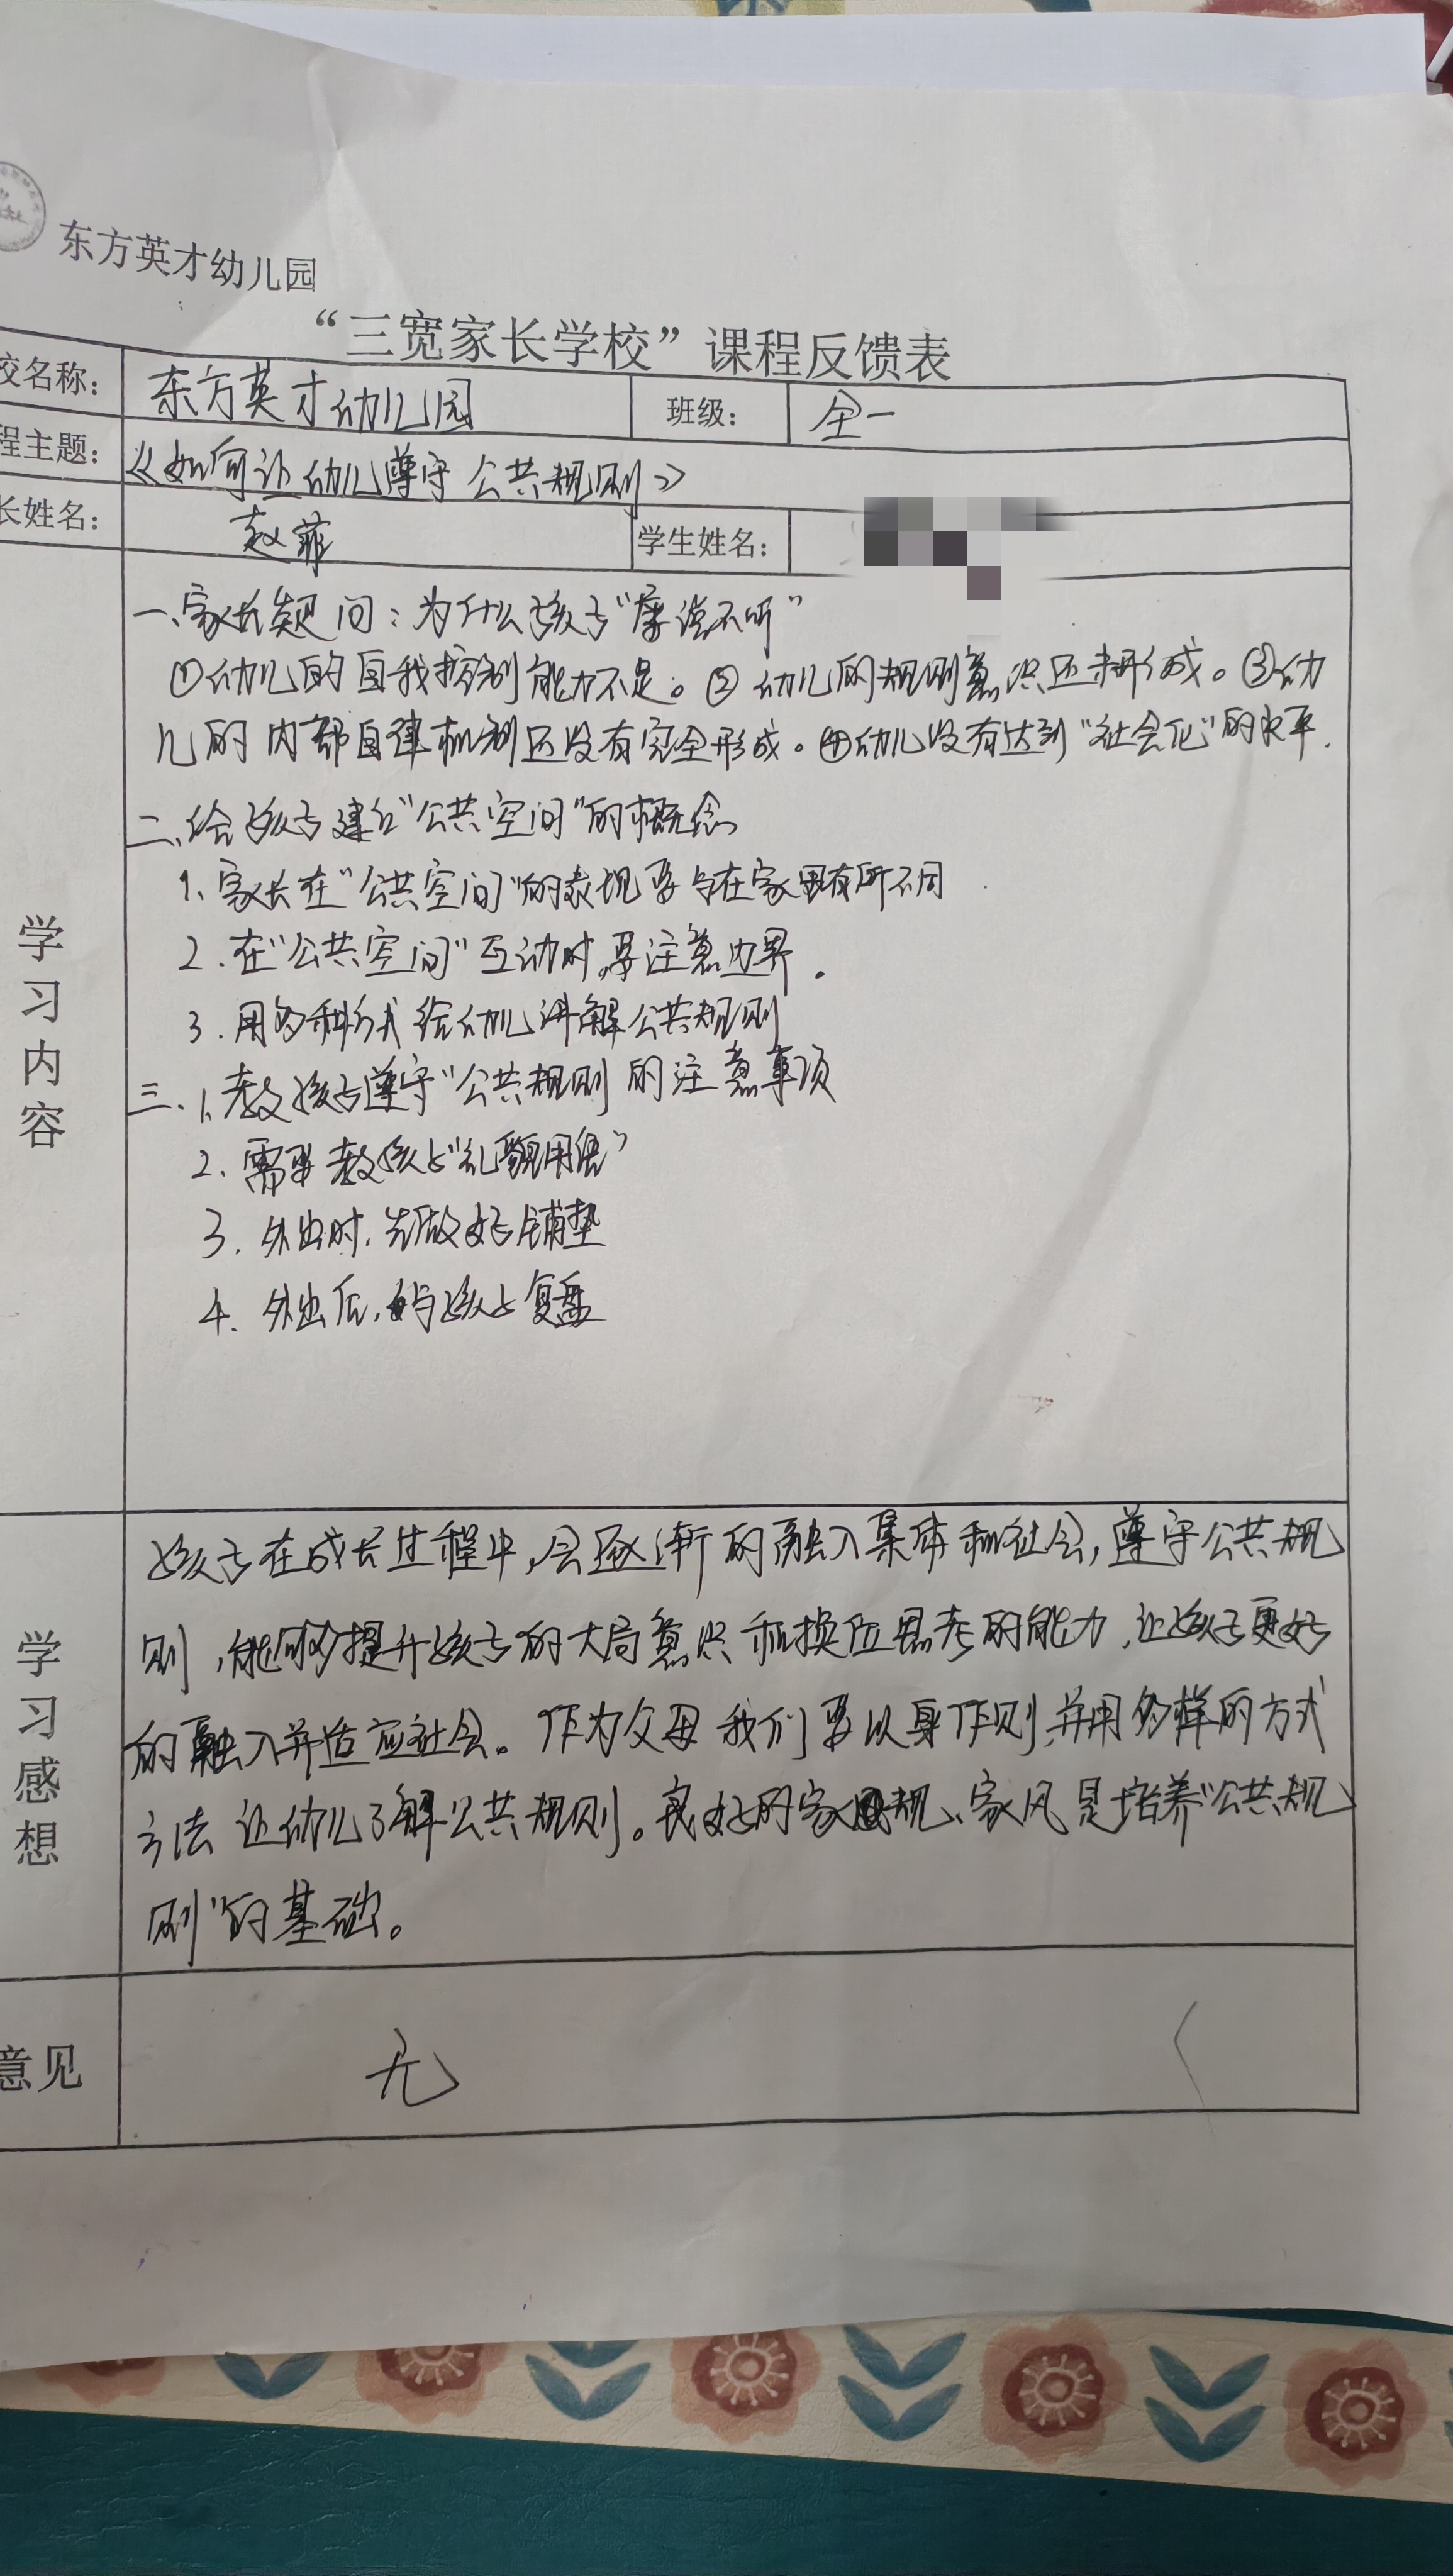 东方英才幼儿园
“三宽家长学校”课程反馈表
校名称： 东方英才幼儿园 班级： 全一
程主题： 《如何让幼儿遵守公共规则》
长姓名： 赵菲 学生姓名：
学习内容
一、家长疑问：为什么孩子“屡说不听”
①幼儿的自我控制能力不足。②幼儿的规则意识还未形成。③幼
儿的内部自律机制还没有完全形成。④幼儿没有达到“社会化”的水平.
二、给孩子建立“公共空间”的概念
1、家长在“公共空间”的表现要与在家里有所不同
2.在“公共空间”互动时,要注意边界.
3.用多种方式给幼儿讲解公共规则
三.1、教孩子遵守“公共规则的注意事项
2.需要教孩子“礼貌用语”
3.外出时,先做好铺垫
4.外出后,与孩子复盘
学习感想
孩子在成长过程中,会逐渐的融入集体和社会,遵守公共规
则,能够提升孩子的大局意识和换位思考的能力,让孩子更好
的融入并适应社会。作为父母我们要以身作则,并用多样的方式
方法让幼儿了解公共规则。良好的家规、家风是培养“公共规
则”的基础。
意见
无